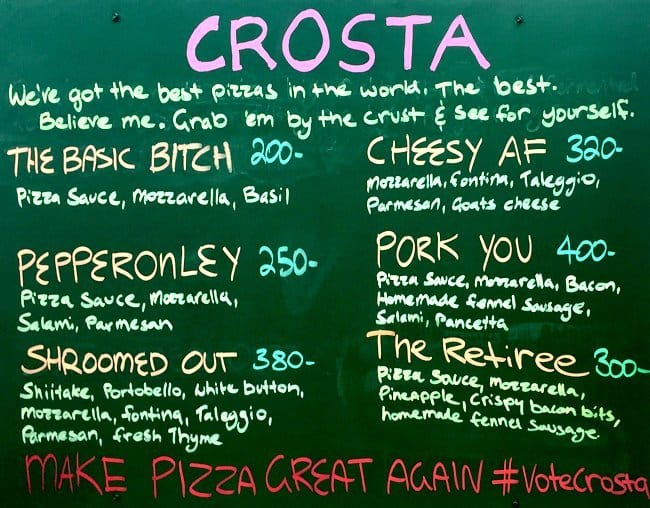 CROSTA
We've got the best pizzas in the world. The best.
Believe me. Grab 'em by the crust & see for yourself.
THE BASIC BITCH 200-
Pizza Sauce, Mozzarella, Basil
PEPPERONLEY 250-
Pizza Sauce, Mozzarella,
Salami, Parmesan
SHROOMED OUT 380-
Shiitake, Portobello, White button,
Mozzarella, fontina, Taleggio,
Parmesan, fresh Thyme
CHEESY AF 320-
Mozzarella, fontina, Taleggio,
Parmesan, Goats cheese
PORK YOU 400-
Pizza Sauce, Mozzarella, Bacon,
Homemade fennel Sausage,
Salami, Pancetta
The Retiree 300-
Pizza Sauce, Mozzarella,
Pineapple, Crispy bacon bits,
homemade fennel Sausage.
MAKE PIZZA GREAT AGAIN #VoteCrosta